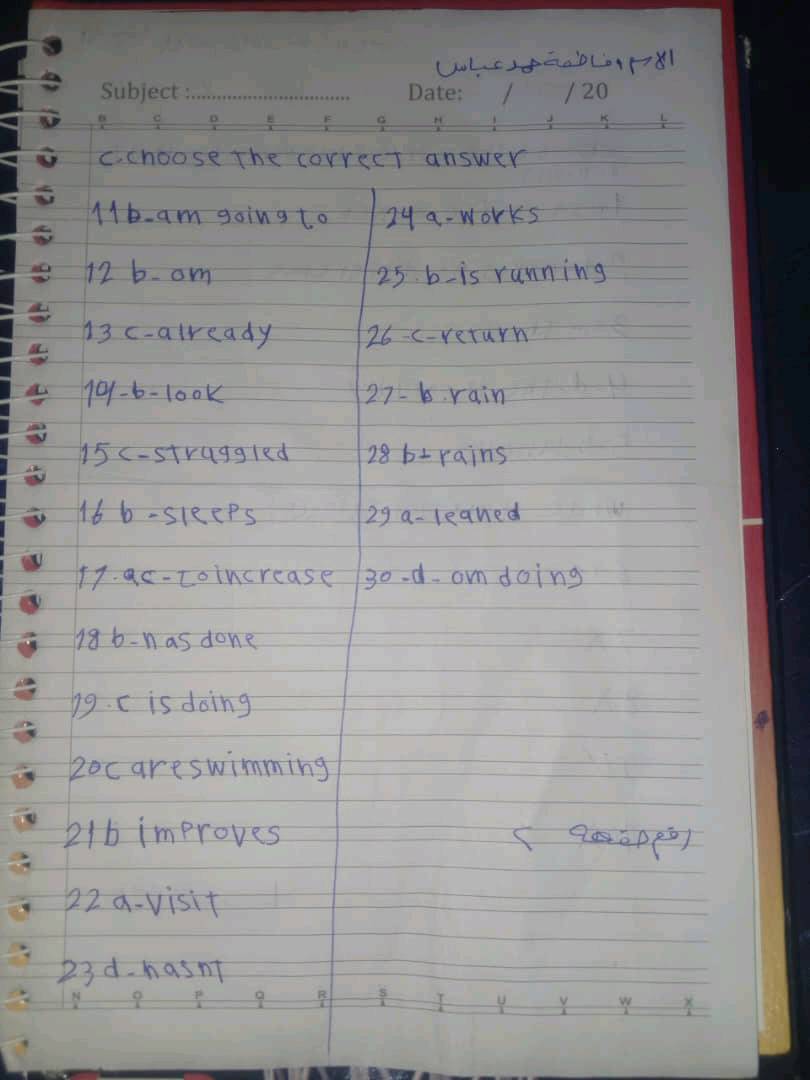 الاسم فاطمة حمد عباس
Subject :................................ Date: / / 20
B C D E F G H I J K L
C.choose the correct answer
11 b-am going to
12 b- om
13 c-already
14-b-look
15 c-struggled
16 b -sleeps
17. c-to increase
18 b-has done
19.c is doing
20 c are swimming
21 b improves
22 a-visit
23 d-hasnt
24 a-works
25.b-is running
26-c-return
27- b.rain
28 b-rains
29 a-leaned
30-d- om doing
رقم الصفحة ٢
N O P Q R S T U V W X